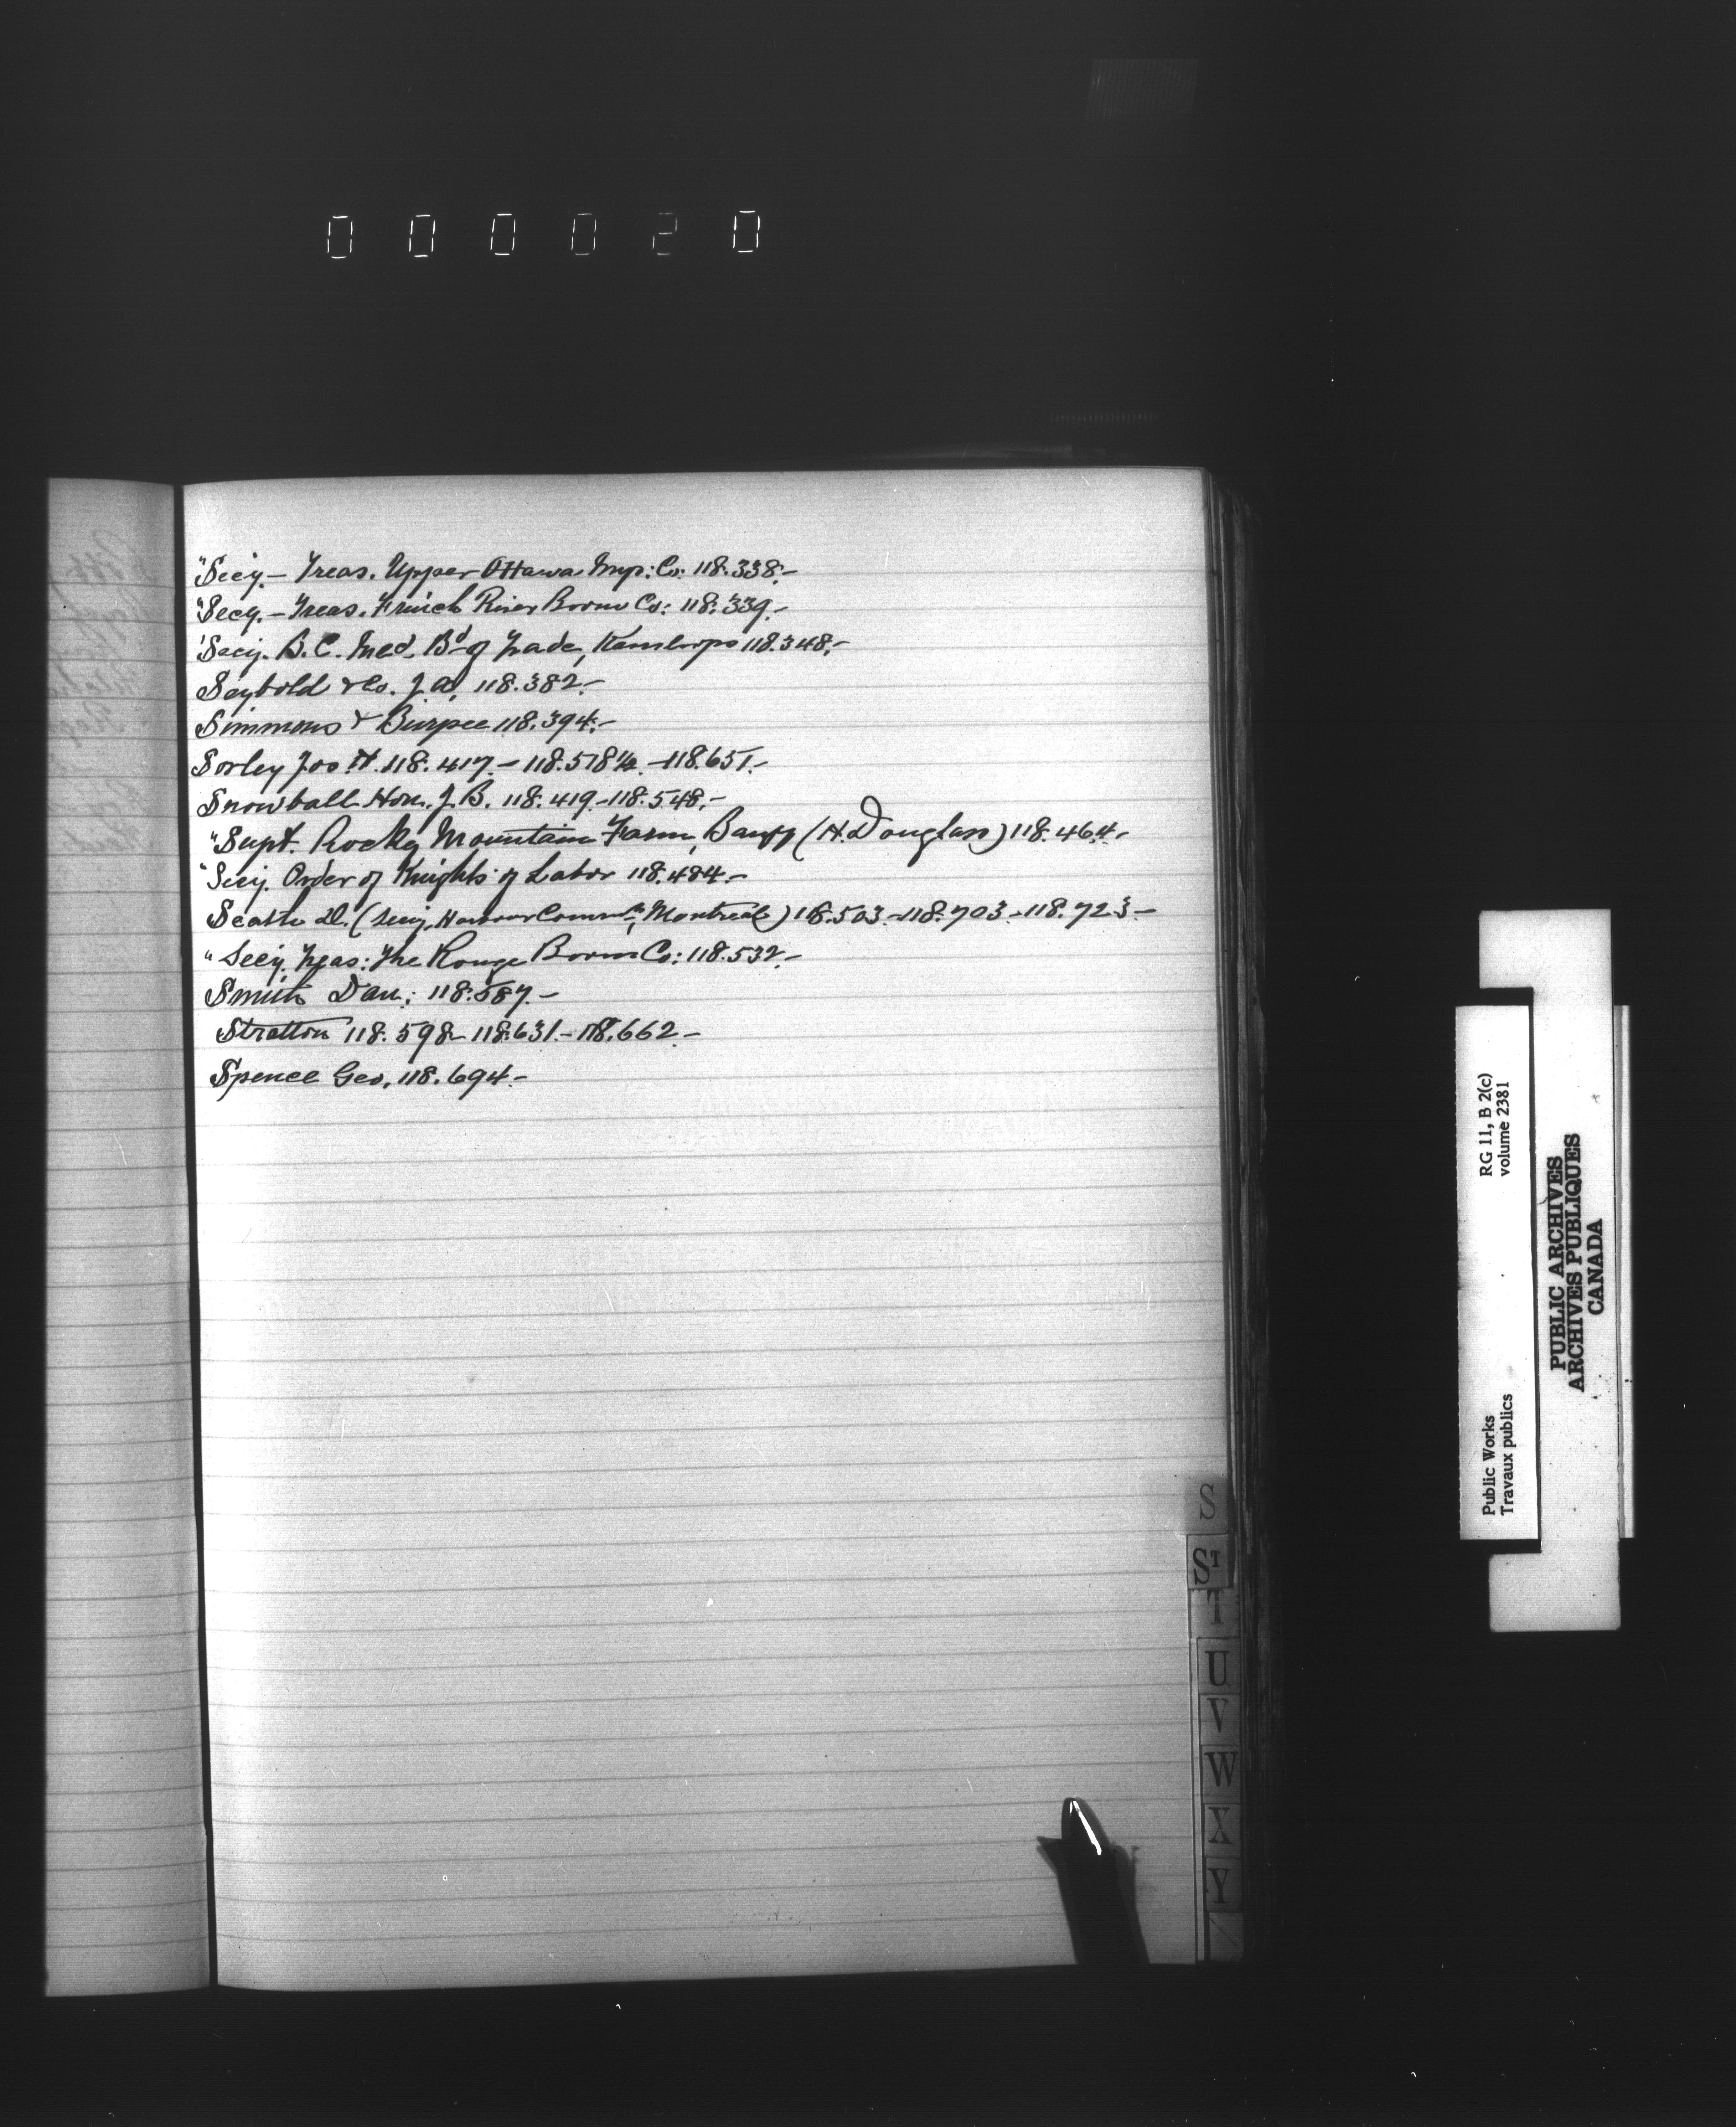 000020
"Secy.- Treas. Upper Ottawa Imp: Co: 118.338.-
"Secy.- Treas. French River Boom Co: 118.339.-
"Secy. B.C. Bd of Trade, Kamloops 118.348.-
Seybold & Co. J.A. 118.382.-
Simmons & Burpee 118.394.-
Sorley Jos H. 118.417.- 118.518½.-118.651.-
Snowball Hon. J.B. 118.419.-118.548.-
"Supt. Rocky Mountain Farm, Banff (H. Douglas) 118.464.-
"Secy. Order of Knights of Labor 118.484.-
Seath D. (Secy. Harbour Commrs, Montreal) 118.503.-118.703.-118.723.-
" Secy. Treas: The Rouge Boom Co: 118.532.-
Smith Dan: 118.587.-
Stratton 118.598-118.631.-118.662.-
Spence Geo. 118.694.-
S
ST
T
U
V
W
X
Y
RG 11, B 2(c)
volume 2381
Public Works
Travaux publics
PUBLIC ARCHIVES
ARCHIVES PUBLIQUES
CANADA